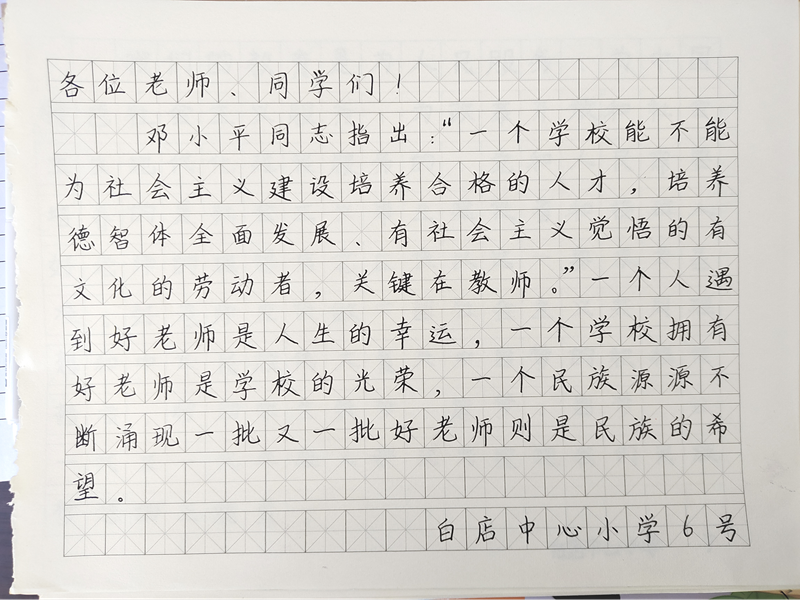 各位老师、同学们！
邓小平同志指出：“一个学校能不能
为社会主义建设培养合格的人才，培养
德智体全面发展、有社会主义觉悟的有
文化的劳动者，关键在教师。”一个人遇
到好老师是人生的幸运，一个学校拥有
好老师是学校的光荣，一个民族源源不
断涌现一批又一批好老师则是民族的希
望。
白店中心小学6号